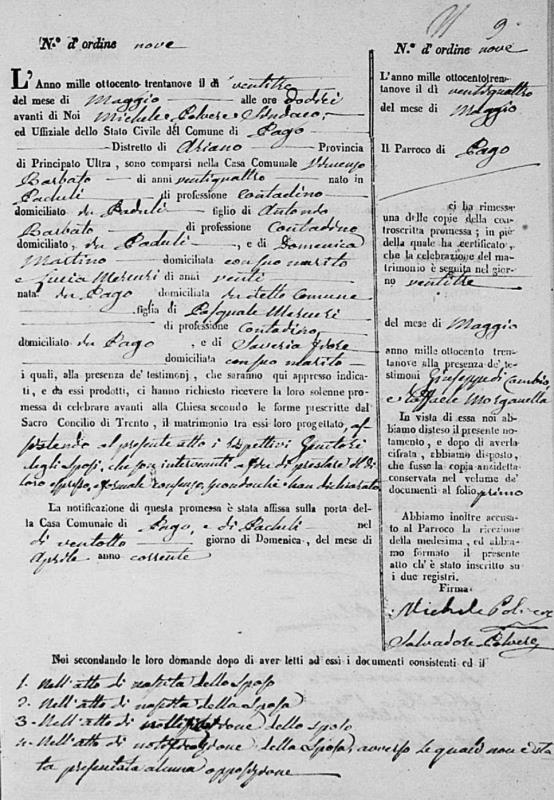 N.° d' ordine nove
L' Anno mille ottocento trentanove il dì ventitre
del mese di Maggio alle ore dodici
avanti di Noi Michele Polvere Sindaco,
ed Uffiziale dello Stato Civile del Comune di Pago
Distretto di Ariano Provincia
di Principato Ultra, sono comparsi nella Casa Comunale Vincenzo
Barbato di anni ventiquattro nato in
Paduli di professione contadino
domiciliato in Paduli figlio di Antonio
Barbato di professione Contadino
domiciliato, in Paduli, e di Domenica
Martino domiciliata con suo marito
e Lucia Mercuri di anni venti
nata in Pago domiciliata in detto Comune
figlia di Pasquale Mercuri
di professione Contadino,
domiciliato in Pago, e di Saveria
domiciliata con suo marito
i quali, alla presenza de' testimonj, che saranno qui appresso indica-
ti, e da essi prodotti, ci hanno richiesto ricevere la loro solenne pro-
messa di celebrare avanti alla Chiesa secondo le forme prescritte dal
Sacro Concilio di Trento, il matrimonio tra essi loro progettato, as
sistendo al presente atto i rispettivi Genitori
degli Sposi, che sono intervenuti a fin di prestare il di
loro espresso, e formale consenso, secondochè han dichiarato
La notificazione di questa promessa è stata affissa sulla porta del-
la Casa Comunale di Pago, e di Paduli nel
dì ventotto giorno di Domenica, del mese di
Aprile anno corrente
9
N.° d' ordine nove
L' Anno mille ottocentotren-
tanove il dì ventiquattro
del mese di Maggio
Il Parroco di Pago
ci ha rimessa
una delle copie della con-
troscritta promessa; in piè
della quale ha certificato,
che la celebrazione del ma-
trimonio è seguita nel gior-
no ventitre
del mese di Maggio
anno mille ottocento tren-
tanove alla presenza de' te-
stimoni Giuseppe di Cambio,
e Raffaele Morganella
In vista di essa noi ab-
biamo disteso il presente no-
tamento, e dopo di averla
cifrata, abbiamo disposto,
che fusse la copia anzidetta
conservata nel volume de'
documenti al folio primo
Abbiamo inoltre accusa-
to al Parroco la ricezione
della medesima, ed abbia-
mo formato il presente
atto ch' è stato inscritto su
i due registri.
Firma
Michele Polvere
Salvadore Polvere
Noi secondando le loro domande dopo di aver letti ad essi i documenti consistenti ed il
1. Nell'atto di nascita dello sposo
2. Nell'atto di nascita della sposa
3. Nell'atto di notificazione dello sposo
4. Nell'atto di notificazione della Sposa, avverso le quali non è sta
ta presentata alcuna opposizione